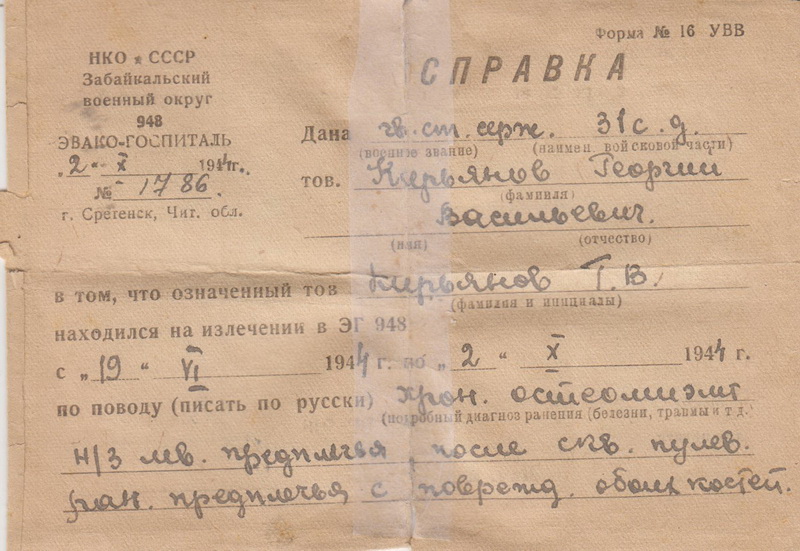 Форма № 16 УВВ
НКО ★ СССР
Забайкальский
военный округ
948
ЭВАКО-ГОСПИТАЛЬ
„2„ X 1944г.
№ 1786.
г. Сретенск, Чит. обл.
СПРАВКА
Дана гв. ст. серж. 31 с. д.
(военное звание) (наимен войсковой части)
тов. Кирьянов Георгий
(фамилия)
Васильевич.
(имя) (отчество)
в том, что означенный тов Кирьянов Г. В.
(фамилия и инициалы)
находился на излечении в ЭГ 948
с „19" VI 1944 г. по „2" X 1944 г.
по поводу (писать по русски) хрон. остеомиэлит
(подробный диагноз ранения (болезни, травмы и т д.
н/3 лев. предплечья после скв. пулев.
ран. предплечья с поврежд. обоих костей.